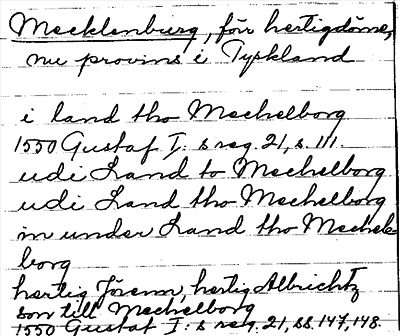 Mecklenburg, förr hertigdöme,
nu provins i Tyskland
i land tho Mechelborg
1550 Gustaf I: s reg. 21, s. 111.
udi Land to Mechelborg
udi Land tho Mechelborg
in under Land tho Mechel-
borg
hertig Jörenn, hertig Albrichtz
son till Mechelborg
1550 Gustaf I: s reg. 21, ss. 147, 148.